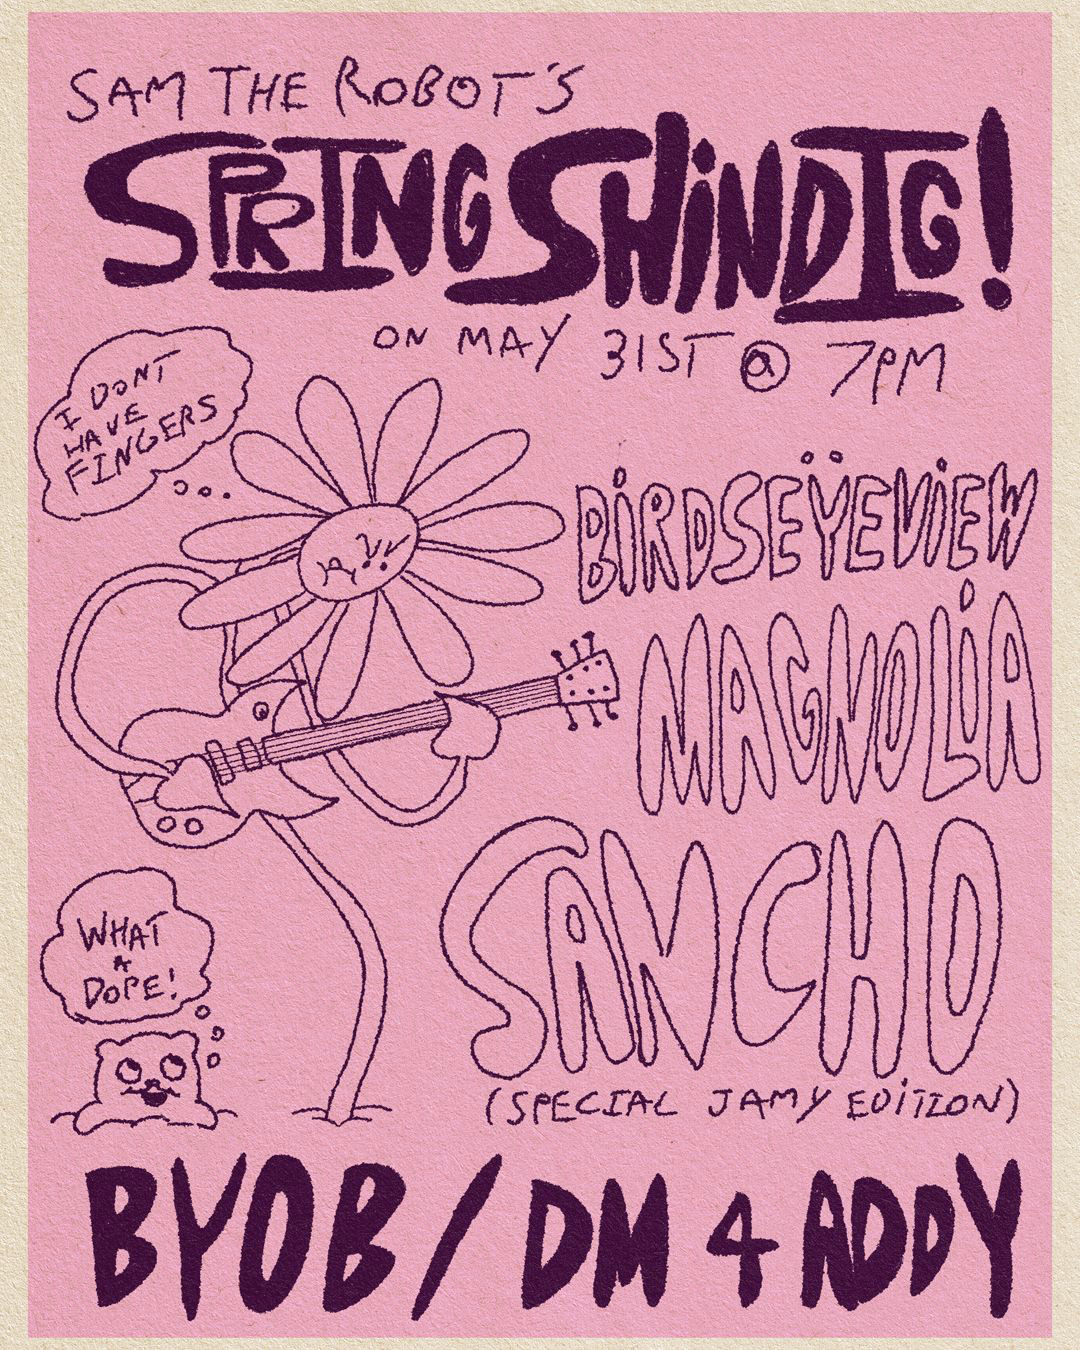 SAM THE ROBOT'S
SPRING SHiNDIG!
ON MAY 31ST @ 7PM
I DONT
HAVE
FINGERS
BiRDSEŸEViEW
MAGNOLiA
SANCHO
(SPECIAL JAMY EDiTION)
WHAT
A
DOPE!
BYOB / DM 4 ADDY